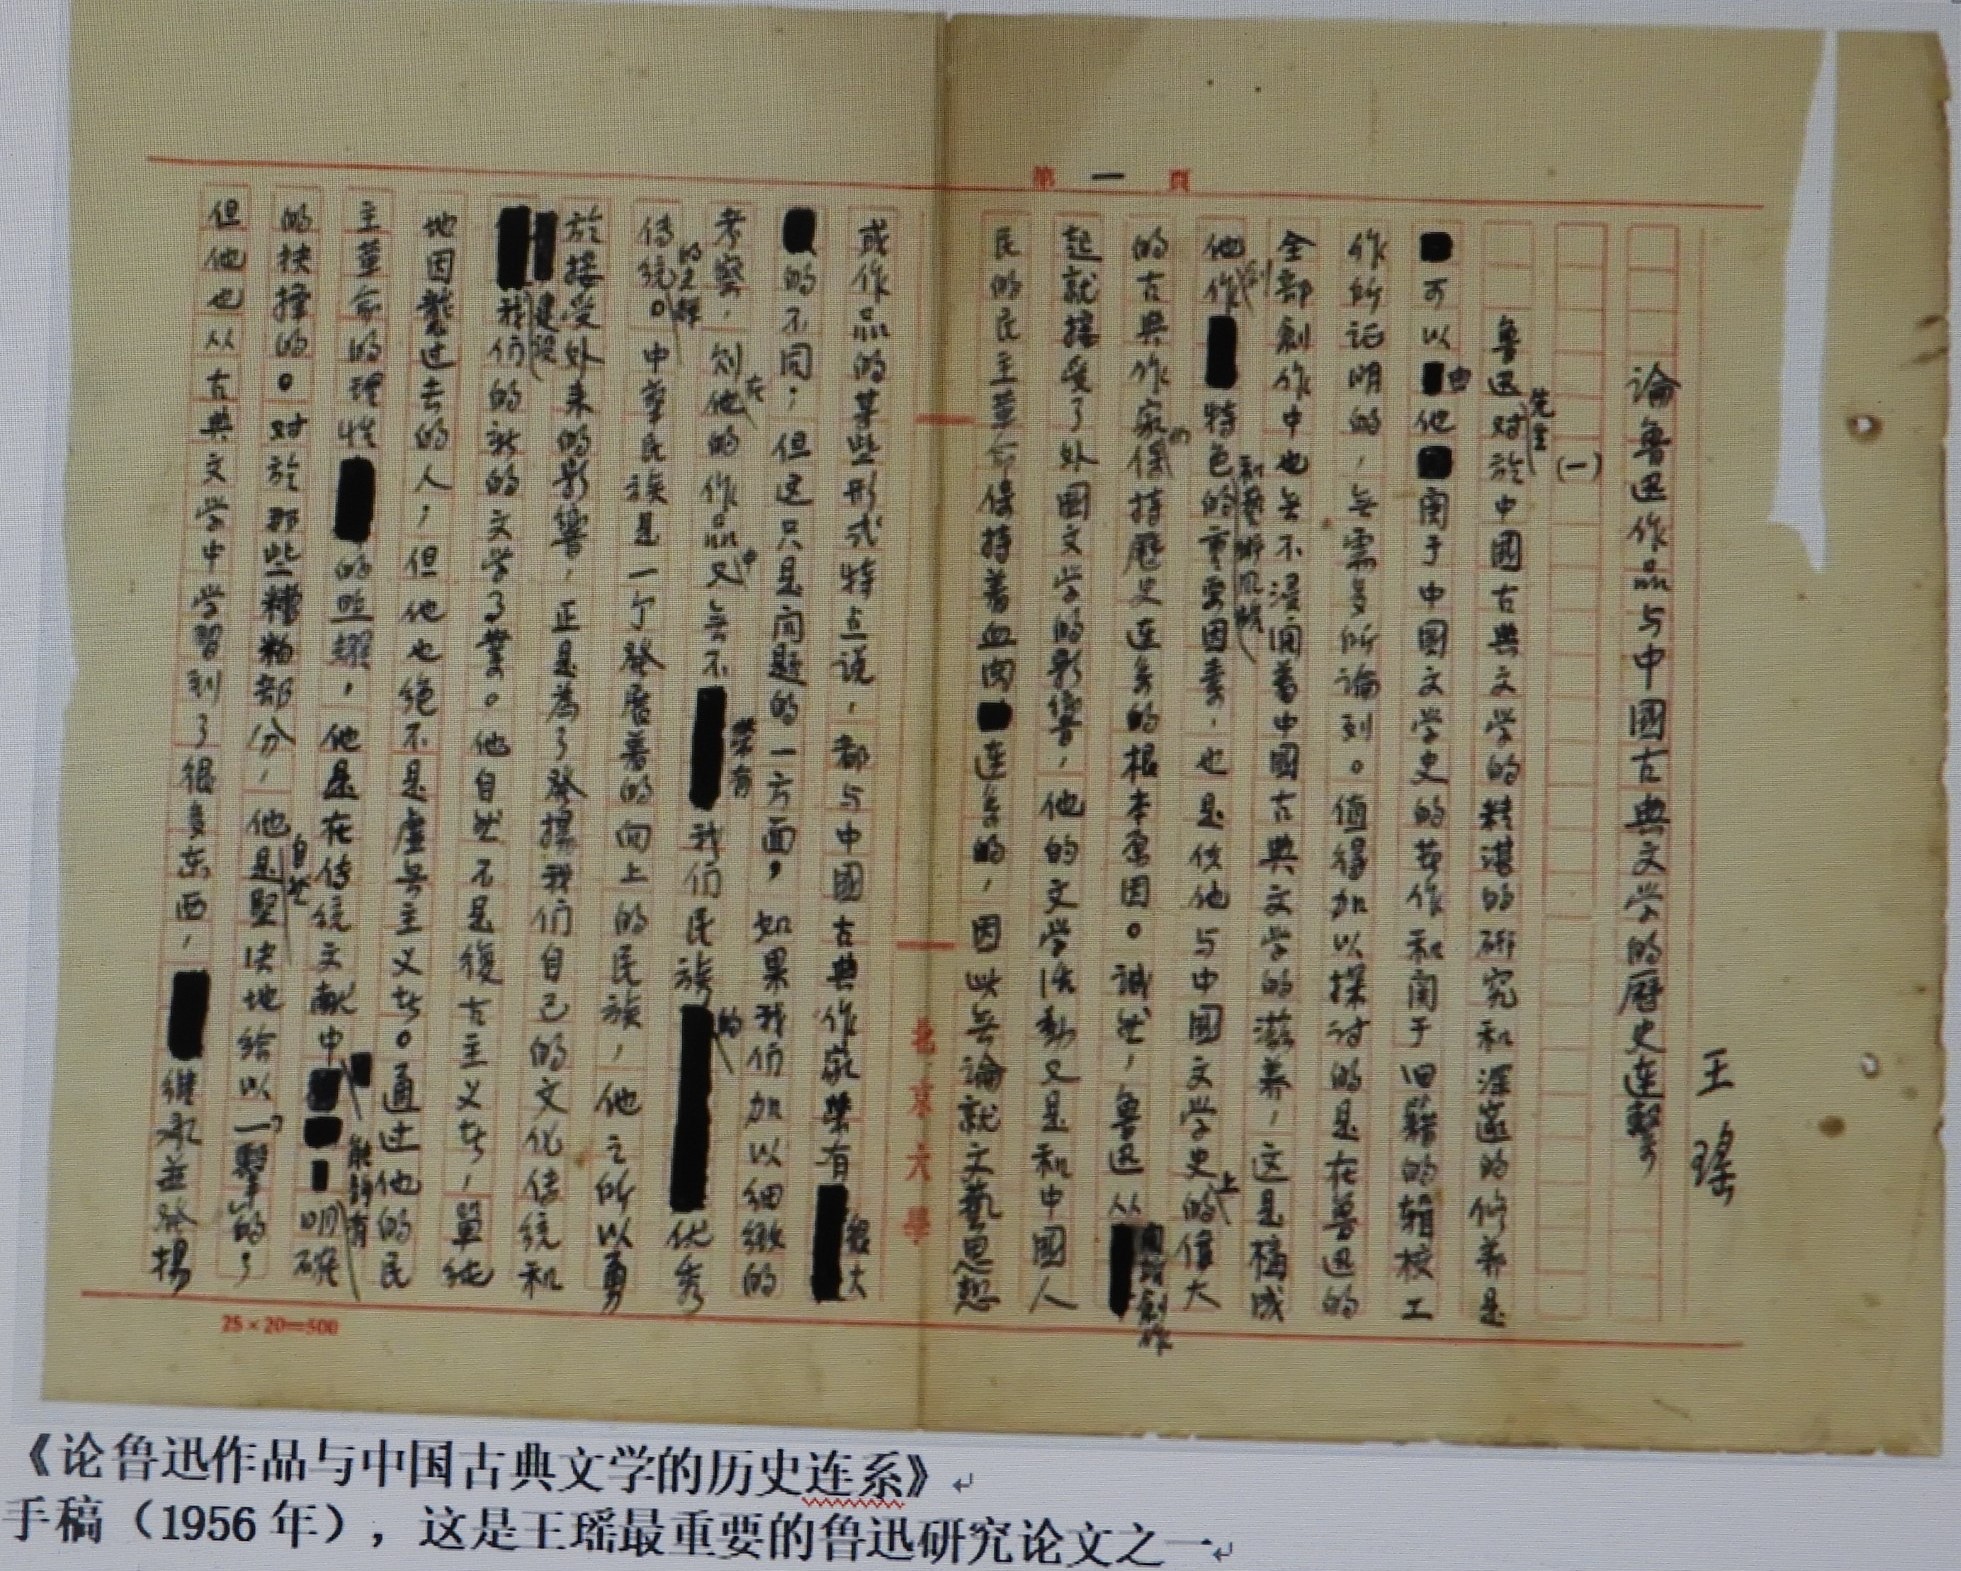 第一頁
論鲁迅作品与中國古典文学的歷史連繫
王瑤
(一)
鲁迅先生对於中國古典文学的精湛的研究和深邃的修养是
可以由他関于中国文学史的著作和関于旧籍的辑校工
作所证明的，無需多所論列。值得加以探讨的是在鲁迅的
全部創作中也無不浸润着中國古典文学的滋养，这是構成
他創作特色和藝術風格的重要因素，也是使他与中國文学史上的偉大
的古典作家們保持歷史連系的根本原因。誠然，鲁迅从開始創作
起就接受了外國文学的影響，他的文学活動又是和中國人
民的民主革命保持着血肉連系的，因此無論就文藝思想
或作品的某些形式特点说，都与中國古典作家桀有很大
的不同；但这只是问题的一方面，如果我们加以细緻的
考察，则在他的作品中又無不帶有我们民族的优秀
传统的光輝。中華民族是一个發展着的向上的民族，他之所以勇
於接受外来的影響，正是為了發揚我们自己的文化传统和
建設我们的新的文学事業。他自然不是復古主义者，單純
地因襲过去的人，但他也绝不是虛無主义者。通过他的民
主革命的理性的照耀，他是在传统文献中能够有明確
的抉擇的。对於那些糟粕部分，他自然是堅决地给以一擊的，
但他也从古典文学中学習到了很多东西，继承並發揚
北京大學
25×20=500
《论鲁迅作品与中国古典文学的历史连系》
手稿（1956 年），这是王瑶最重要的鲁迅研究论文之一